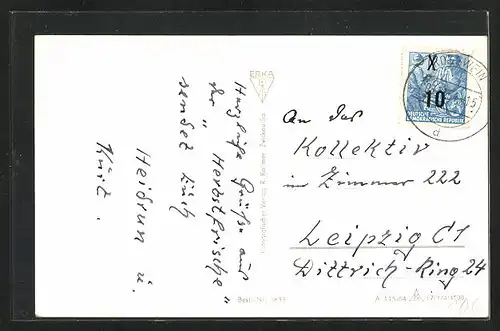 Herzliche Grüße aus
der "Herbstfrische"
sendet Euch
Heidrun u.
Kurt.
ERKA
An das
Kollektiv
im Zimmer 222
Leipzig C1
Dittrich-Ring 24
X
10
DEUTSCHE
DEMOKRATISCHE REPUBLIK
d